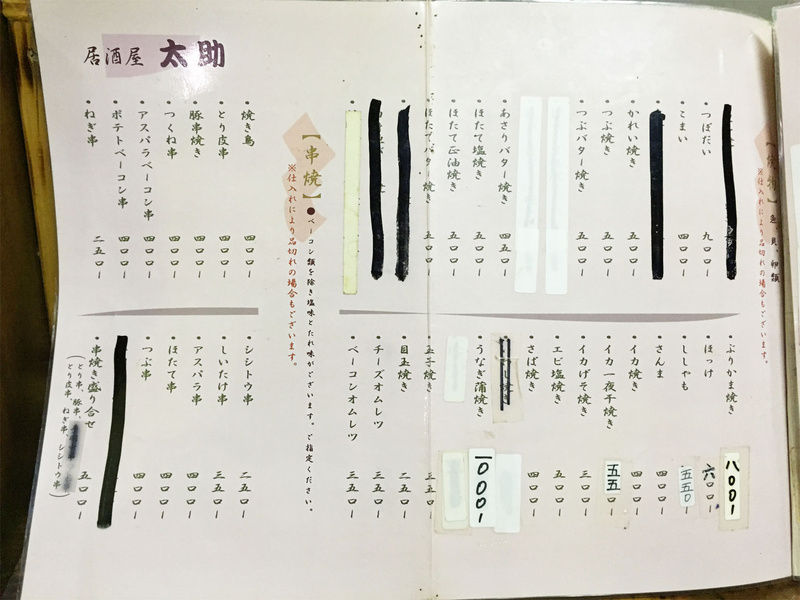 【焼物】魚、貝、卵類
※仕入れにより品切れの場合もございます。
・つぼだい 九〇〇ー
・こまい 四〇〇ー
・かれい焼き 五〇〇ー
・つぶ焼き 五〇〇ー
・つぶバター焼き 五〇〇ー
・あさりバター焼き 四五〇ー
・ほたて塩焼き 五〇〇ー
・ほたて正油焼き 五〇〇ー
・ほたてバター焼き 五〇〇ー
・ぶりかま焼き 八〇〇ー
・ほっけ 六〇〇ー
・ししゃも 五五〇
・さんま 四〇〇ー
・イカ焼き 四〇〇ー
・イカ一夜干焼き 五五〇ー
・イカげそ焼き 三〇〇ー
・エビ塩焼き 五〇〇ー
・さば焼き 四〇〇ー
・うなぎ蒲焼き 一〇〇〇ー
・玉子焼き 三五〇ー
・目玉焼き 二五〇ー
・チーズオムレツ 三五〇ー
・ベーコンオムレツ 三五〇ー
居酒屋 太助
【串焼】●ベーコン類を除き塩味とたれ味がございます。ご指定ください。
※仕入れにより品切れの場合もございます。
・焼き鳥 四〇〇ー
・とり皮串 四〇〇ー
・豚串焼き 四〇〇ー
・つくね串 四〇〇ー
・アスパラベーコン串 四〇〇ー
・ポテトベーコン串 四〇〇ー
・ねぎ串 二五〇ー
・シシトウ串 二五〇ー
・しいたけ串 三五〇ー
・アスパラ串 四〇〇ー
・ほたて串 四〇〇ー
・つぶ串 四〇〇ー
・串焼き盛り合せ 五〇〇ー
(とり串、豚串、
とり皮串、ねぎ串、シシトウ串)